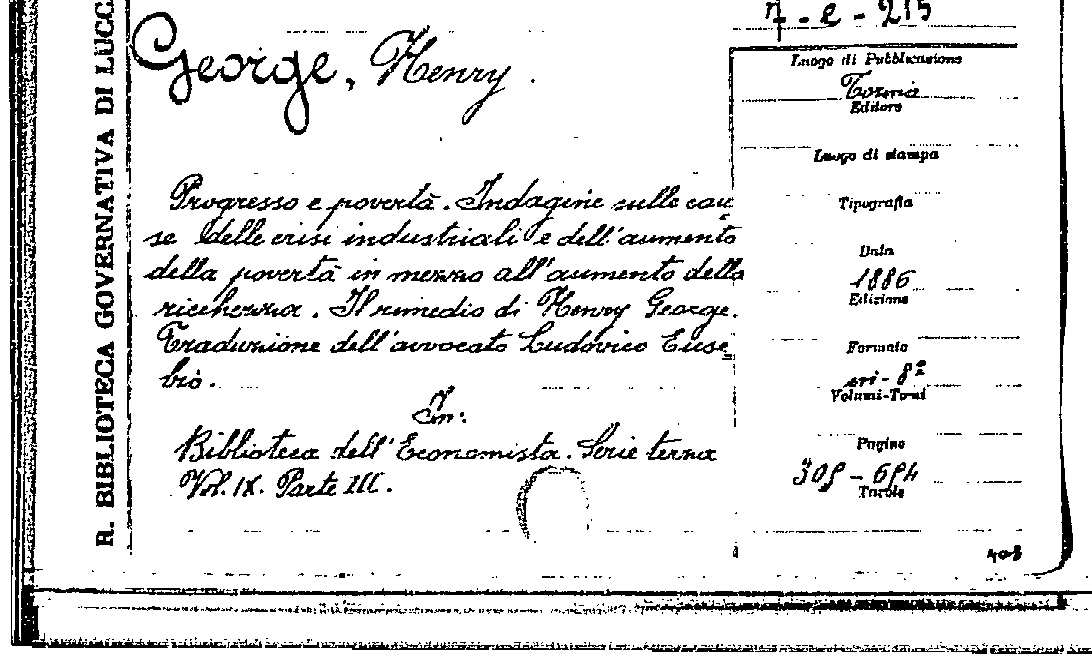 R. BIBLIOTECA GOVERNATIVA DI LUCCA
George, Henry.
Progresso e povertà. Indagine sulle cau
se delle crisi industriali e dell'aumento
della povertà in mezzo all'aumento della
ricchezza. Il rimedio di Henry George.
Traduzione dell'avvocato Ludovico Euse=
bio.
In:
Biblioteca dell'Economista. Serie terza
Vol. IX. Parte III.
7-e-215
Luogo di Pubblicazione
Torino
Editore
Luogo di stampa
Tipografia
Data
1886
Edizione
Formato
in-8º
Volumi-Tomi
Pagine
Tavole